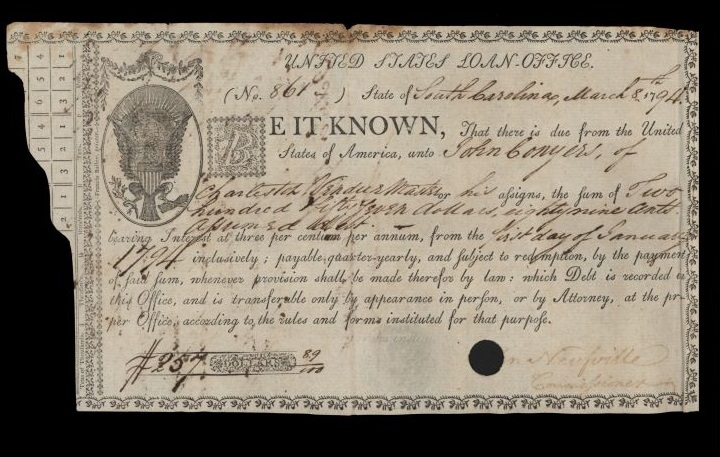 UNITED STATES LOAN-OFFICE.
(No. 861 ) State of South Carolina, March 8th 1794.
BE IT KNOWN, That there is due from the United
States of America, unto John Conyers, of
Charleston Vendue Master or his assigns, the sum of Two
hundred fifty seven dollars, eighty nine Cents
assumed debt
bearing Interest at three per centum per annum, from the first day of January
1794 inclusively; payable quarter-yearly, and subject to redemption, by the payment
of said sum, whenever provision shall be made therefor by law: which Debt is recorded in
this Office, and is transferable only by appearance in person, or by Attorney, at the pro-
per Office, according to the rules and forms instituted for that purpose.
$ 257 DOLLARS 89/100
Jn Neufville
Commissioner